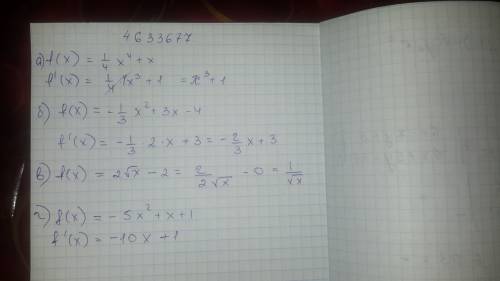 4633677
а) f(x) = 1/4 x⁴ + x
f'(x) = 1/4 · 4x³ + 1 = x³ + 1
б) f(x) = -1/3 x² + 3x - 4
f'(x) = -1/3 · 2 · x + 3 = -2/3 x + 3
в) f(x) = 2√x - 2 = 2/2√x - 0 = 1/√x
г) f(x) = -5x² + x + 1
f'(x) = -10x + 1